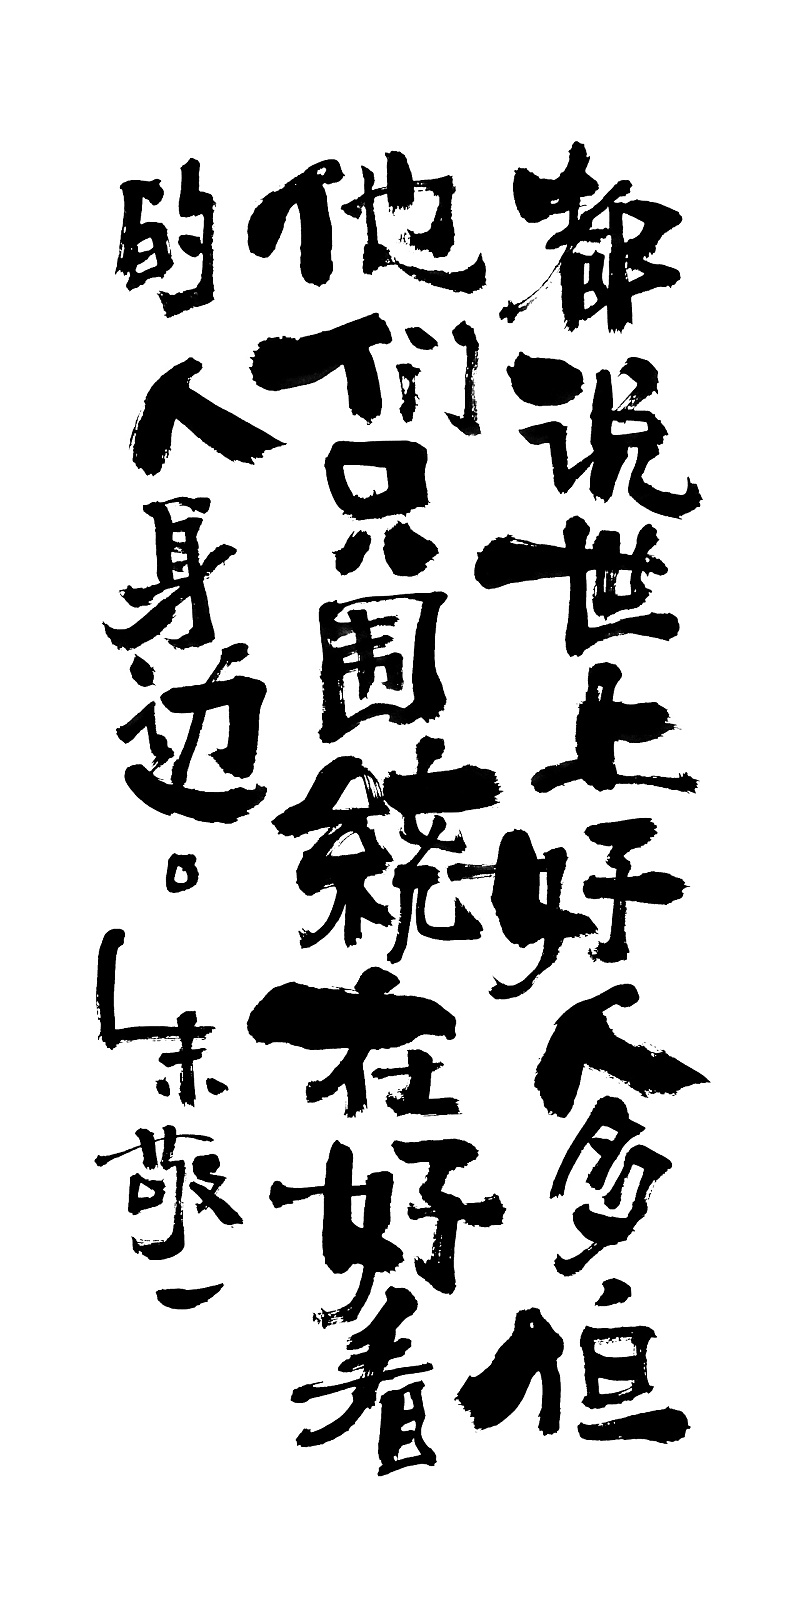 都说世上好人多但
他们只围绕在好看
的人身边。
朱敬一